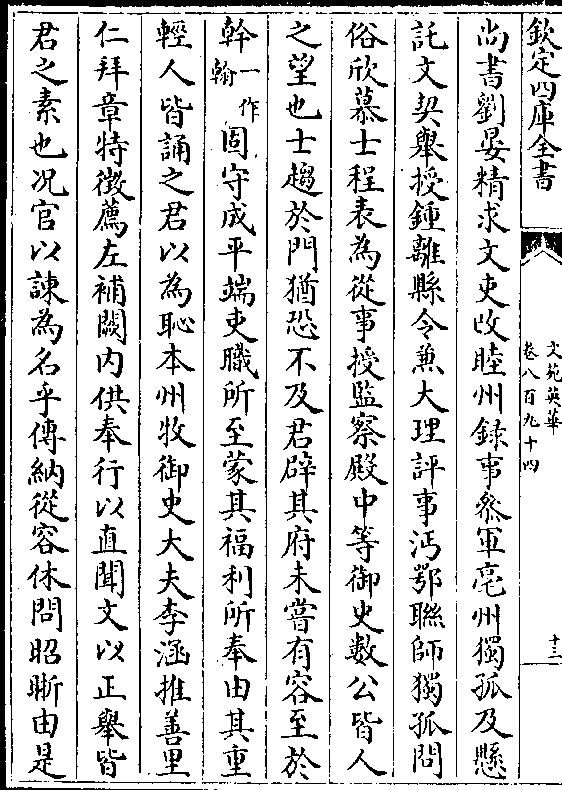 欽定四庫全書
文苑英華
卷八百九十四
十三
尚書劉晏精求文吏改睦州録事叅軍亳州獨孤及懸
託文契舉授鍾離縣令兼大理評事沔鄂聯師獨孤問
俗欣慕士程表為從事授監察殿中等御史數公皆人
之望也士趨於門猶恐不及君辟其府未嘗有容至於
幹一作翰固守成平端吏職所至蒙其福利所奉由其重
輕人皆誦之君以為恥本州牧御史大夫李涵推善里
仁拜章特徵薦左補闕内供奉行以直聞文以正舉皆
君之素也况官以諫為名乎傳納從容休問昭晣由是